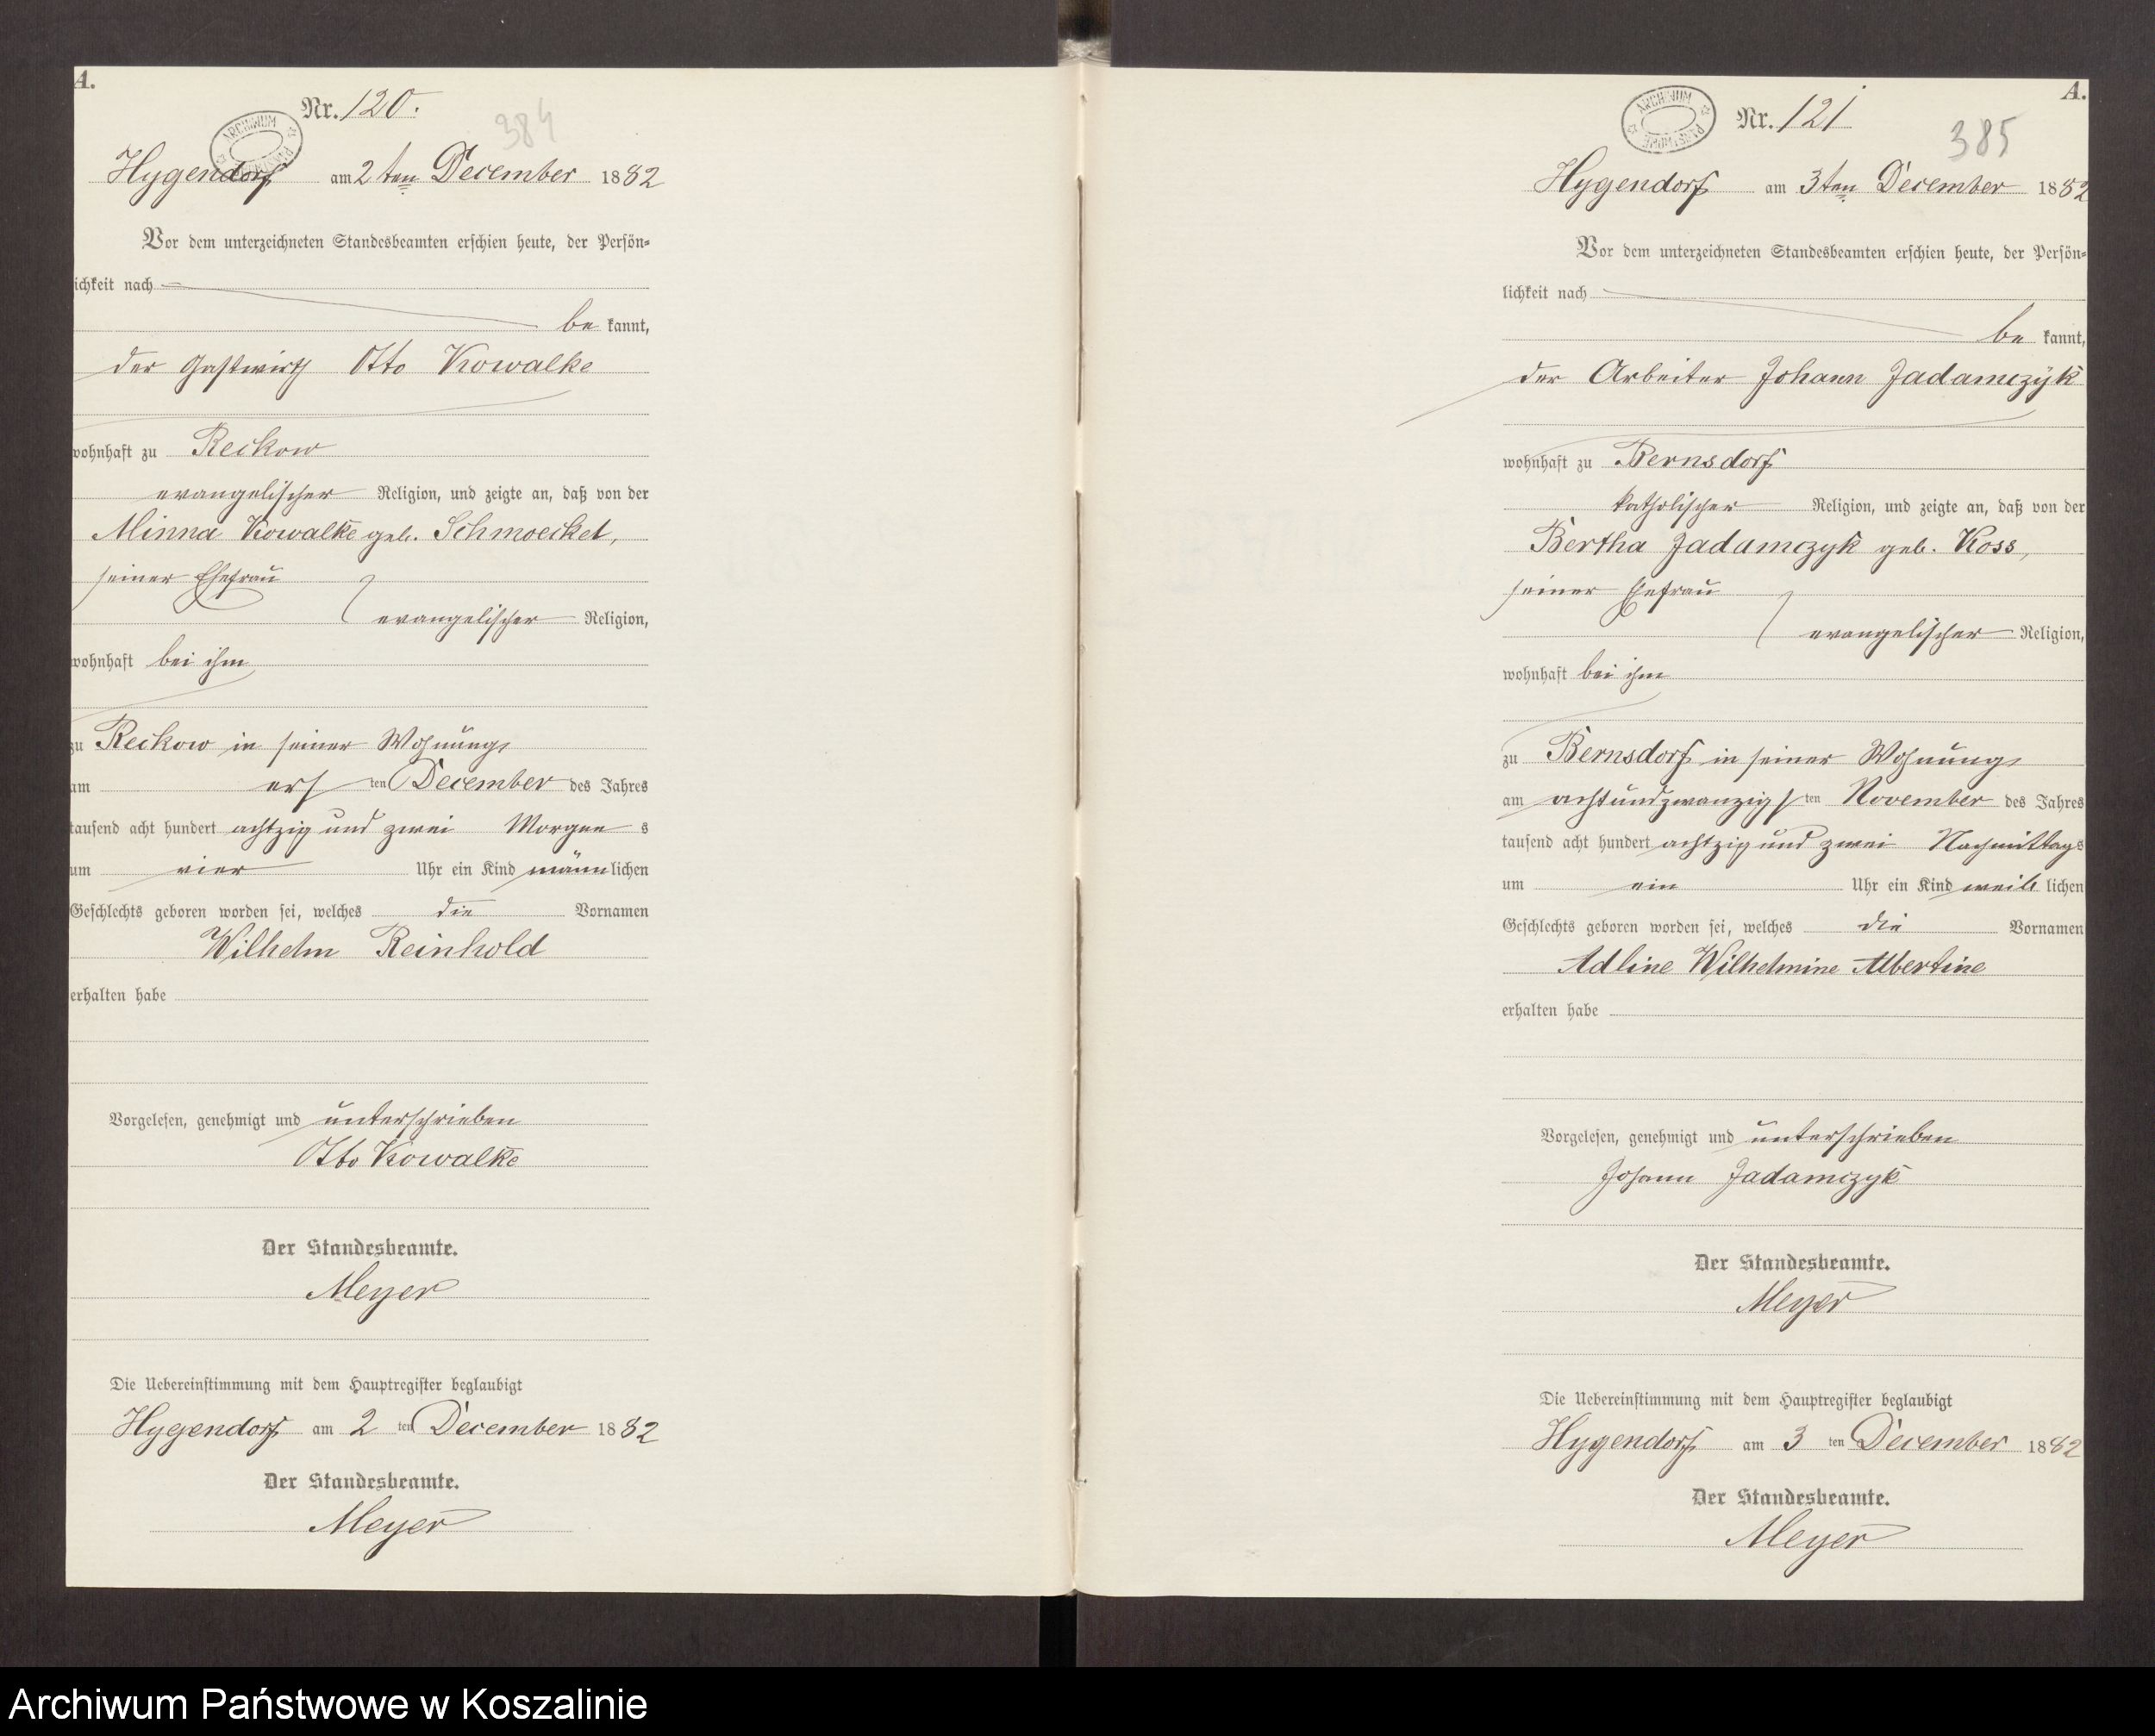 A.
Nr. 120.
384
ARCHIWUM
Hygendorf am 2 ten December 1882
Vor dem unterzeichneten Standesbeamten erschien heute, der Persön-
ichkeit nach
be kannt,
der Gastwirth Otto Kowalke
wohnhaft zu Reckow
evangelischer Religion, und zeigte an, daß von der
Minna Kowalke geb. Schmoeckel,
seiner Ehefrau
evangelischer Religion,
wohnhaft bei ihm
zu Reckow in seiner Wohnung
am ers ten December des Jahres
tausend acht hundert achtzig und zwei Morgen s
um vier Uhr ein Kind männlichen
Geschlechts geboren worden sei, welches die Vornamen
Wilhelm Reinhold
erhalten habe
Vorgelesen, genehmigt und unterschrieben
Otto Kowalke
Der Standesbeamte.
Meyer
Die Uebereinstimmung mit dem Hauptregister beglaubigt
Hygendorf am 2 ten December 1882
Der Standesbeamte.
Meyer
A.
Nr. 121
385
ARCHIWUM PAŃSTWOWE
Hygendorf am 3ten December 1882
Vor dem unterzeichneten Standesbeamten erschien heute, der Persön-
lichkeit nach
be kannt,
der Arbeiter Johann Jadamczÿk
wohnhaft zu Bernsdorf
katholischer Religion, und zeigte an, daß von der
Bertha Jadamczyk geb. Koss,
seiner Ehefrau
evangelischer Religion,
wohnhaft bei ihm
zu Bernsdorf in seiner Wohnung
am achtundzwanzigs ten November des Jahres
tausend acht hundert achtzig und zwei Nachmittags
um ein Uhr ein Kind weib lichen
Geschlechts geboren worden sei, welches die Vornamen
Adline Wilhelmine Albertine
erhalten habe
Vorgelesen, genehmigt und unterschrieben
Johann Jadamczyk
Der Standesbeamte.
Meyer
Die Uebereinstimmung mit dem Hauptregister beglaubigt
Hygendorf am 3 ten December 1882
Der Standesbeamte.
Meyer
Archiwum Państwowe w Koszalinie